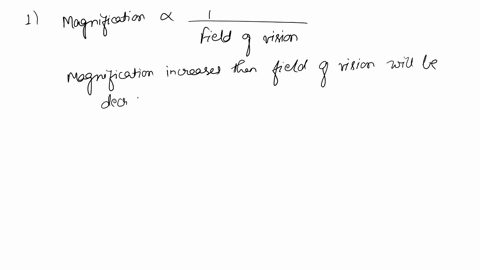 1) Magnification ∝ 1 / Field of vision
Magnification increases then field of vision will be
decr